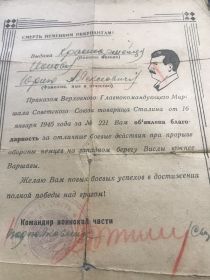 СМЕРТЬ НЕМЕЦКИМ ОККУПАНТАМ!
Выдана Красноармейцу
(Фамилия, имя и отчество)
Приказом Верховного Главнокомандующего Мар-
шала Советского Союза товарища Сталина от 16
января 1945 года за № 221 Вам об'явлена благо-
дарность за отличные боевые действия при прорыве
обороны немцев на западном берегу Вислы южнее
Варшавы.
Желаю Вам новых боевых успехов в достижении
полной победы над врагом!
Командир воинской части